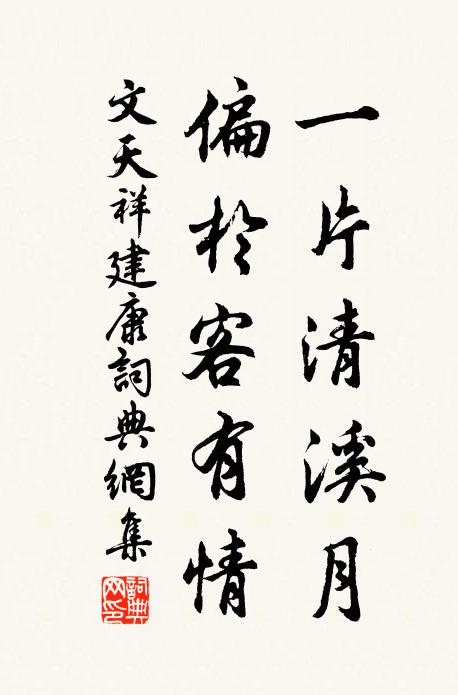 一片清溪月
偏於客有情
文天祥建康詞典網集
詞典网印